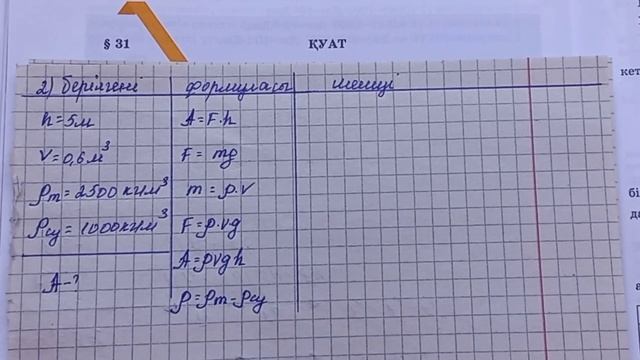 § 31 ҚУАТ
2) берілгені формуласы шешуі
h=5м A=F·h
V=0,6м³ F=mg
ρт=2500кг/м³ m=ρ·V
ρсу=1000кг/м³ F=ρ·Vg
A-? A=ρVgh
ρ=ρт-ρсу
кет
бі
да